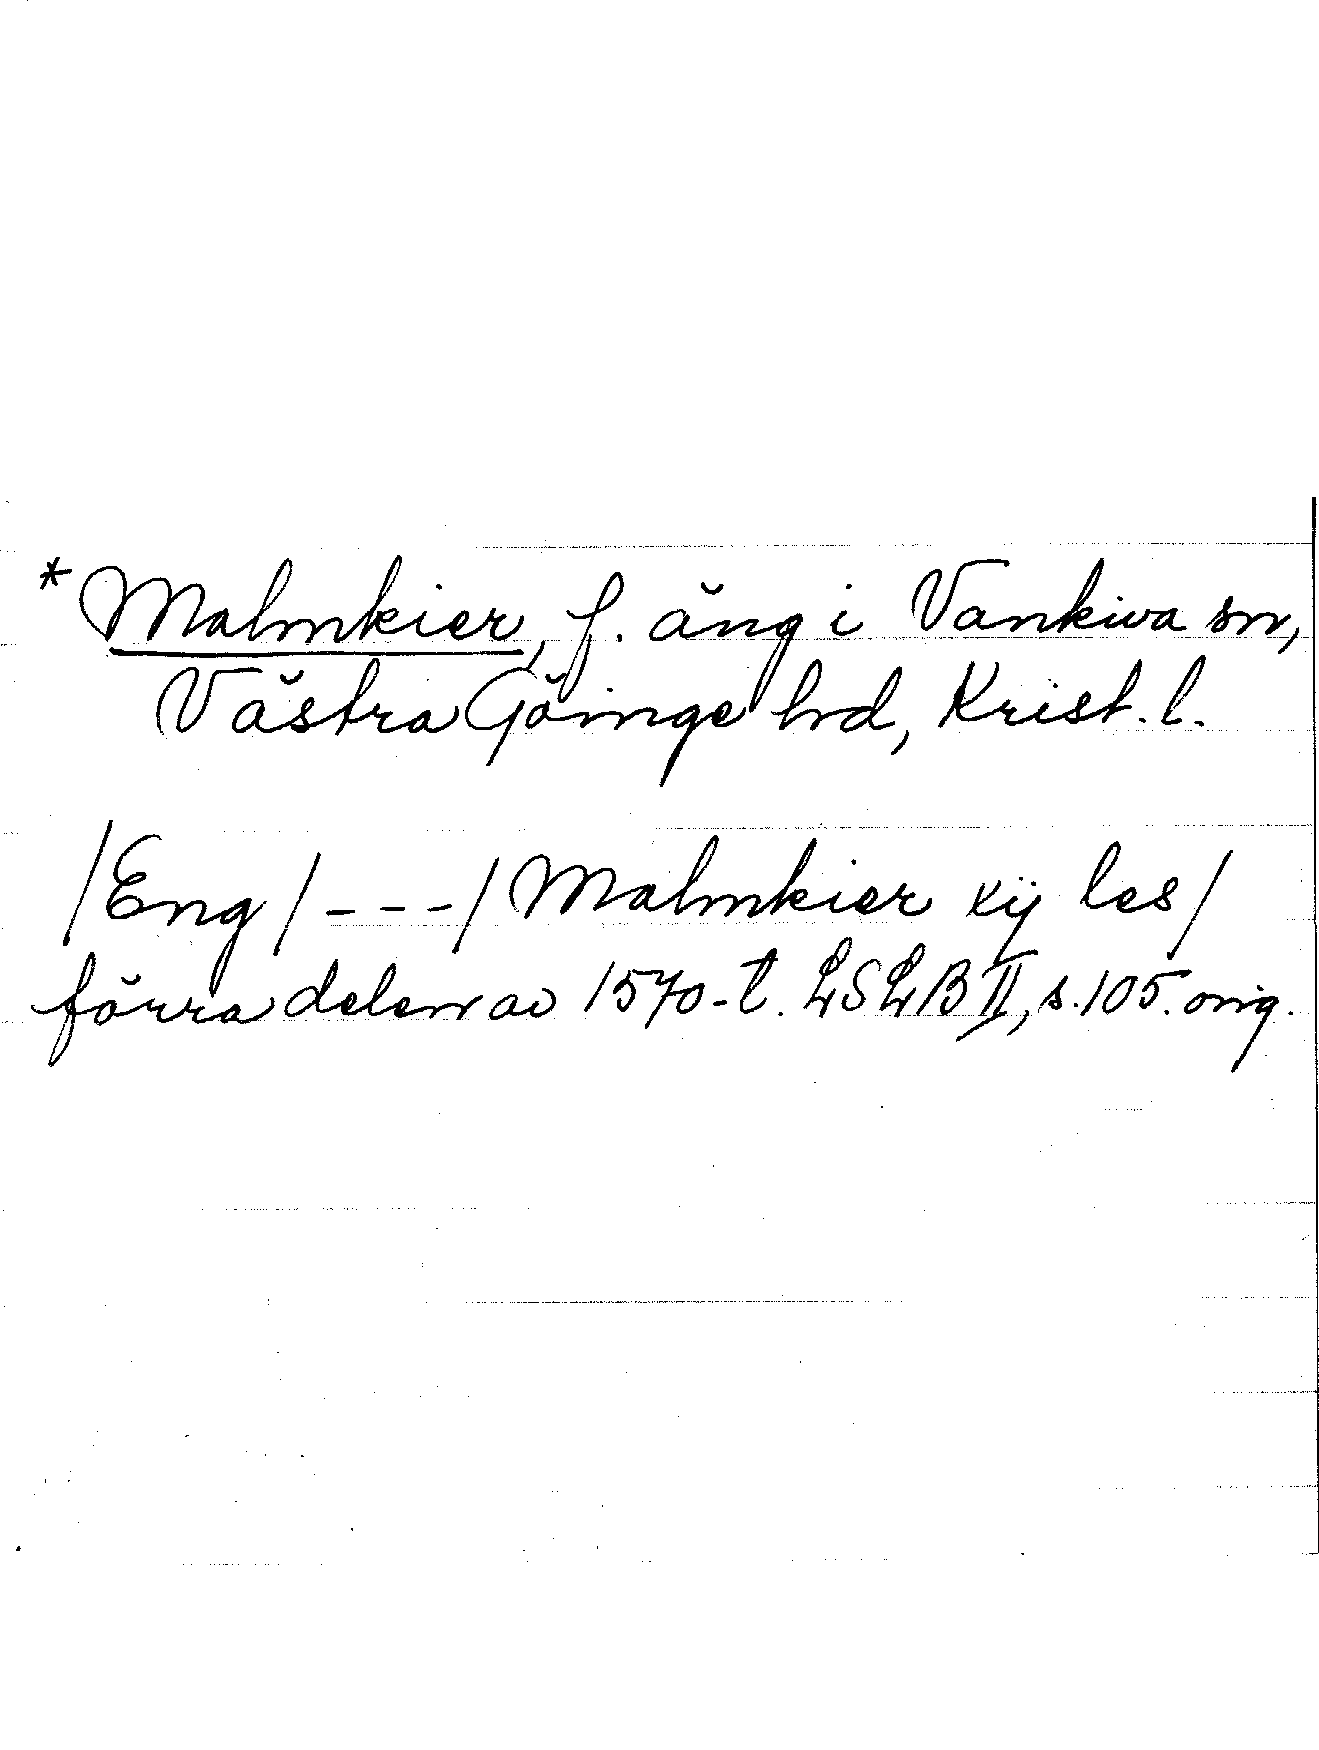 * Malmkier, f. äng i Vankiva sn,
Västra Göinge hd, Krist. l.
/Eng/ - - - / Malmkier xij les/
förra delen av 1570-t. LSLB II, s. 105. orig.